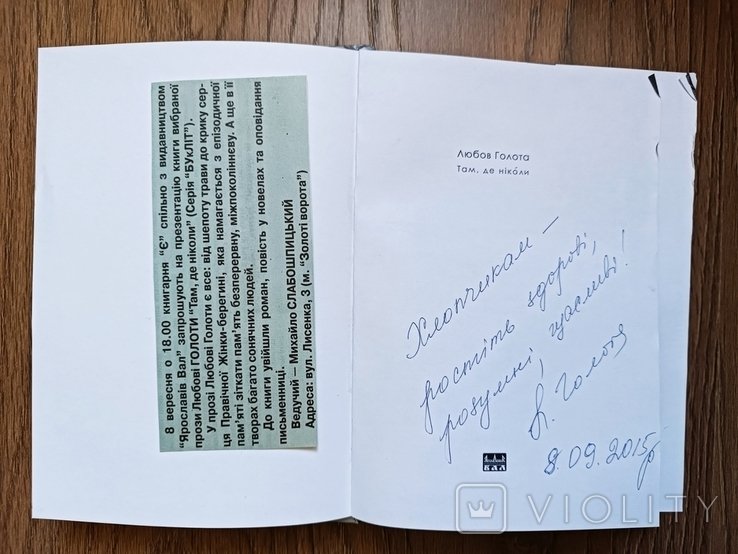 8 вересня о 18.00 книгарня “Є” спільно з видавництвом
“Ярославів Вал” запрошують на презентацію книги вибраної
прози Любові ГОЛОТИ “Там, де ніколи” (Серія “БУкЛІТ”).
У прозі Любові Голоти є все: від шепоту трави до крику сер-
ця Правічної Жінки-берегині, яка намагається з епізодичної
пам’яті зіткати пам’ять безперервну, міжпоколіннєву. А ще в її
творах багато сонячних людей.
До книги увійшли роман, повість у новелах та оповідання
письменниці.
Ведучий — Михайло СЛАБОШПИЦЬКИЙ
Адреса: вул. Лисенка, 3 (м. “Золоті ворота”)
Любов Голота
Там, де ніко́ли
Хлопчикам —
ростіть здорові,
розумні, щасливі!
Л. Голота
8.09.2015р
ВАЛ
VIOLITY